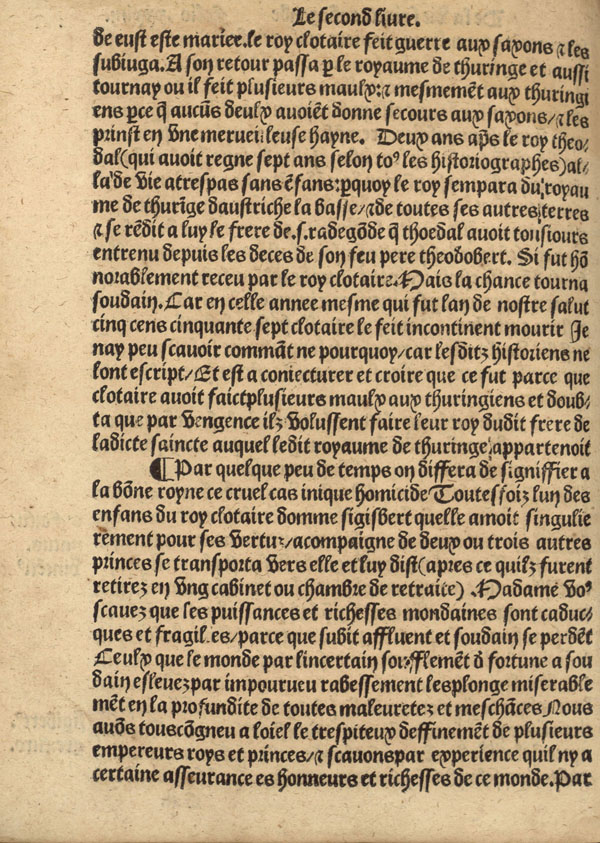 Le second liure.
de eust este mariee. le roy clotaire feit guerre aux saxons ⁊ les
subiuga. A son retour passa p̲ le royaume de thuringe et aussi
tournay ou il feit plusieurs maulx: ⁊ mesmemẽt aux thuringi
ens p̲ce q̃ aucũs deulx auoiẽt donne secours aux saxons/ ⁊ les
prinst en vne merueilleuse hayne. Deux ans ap̃s le roy theo
dal (qui auoit regne sept ans selon toꝰ les historiographes) al-
la de vie a trespas sans ẽfans: p̲quoy le roy sempara du royau
me de thurĩge daustriche la basse/ ⁊ de toutes ses autres terres
⁊ se rẽdit a luy le frere de .s. radegõde q̃ thoedal auoit tousiours
entrenu depuis les deces de son feu pere theodobert. Si fut hõ
norablement receu par le roy clotaire. Mais la chance tourna
soudain. Car en celle annee mesme qui fut lan de nostre salut
cinq cens cinquante sept clotaire le feit incontinent mourir Je
nay peu scauoir commãt ne pourquoy/ car lesditz historiens ne
lont escript/ Et est a coniecturer et croire que ce fut parce que
clotaire auoit faict plusieurs maulx aux thuringiens et doub-
ta que par vengence ilz volussent faire leur roy dudit frere de
ladicte saincte auquel ledit royaume de thuringe appartenoit
¶ Par quelque peu de temps on differa de signiffier a
la bõne royne ce cruel cas inique homicide Toutesfoiz lun des
enfans du roy clotaire domme sigisbert quelle amoit singulie
rement pour ses vertuz/ acompaigne de deux ou trois autres
princes se transporta vers elle et luy dist (apres ce quilz furent
retirez en vng cabinet ou chambre de retraite) Madame voꝰ
scauez que les puissances et richesses mondaines sont caduc-
ques et fragilles/ parce que subit affluent et soudain se perdẽt
Ceulx que le monde par lincertain soufflemẽt d̃ fortune a sou
dain esleuez par impourueu rabessement les plonge miserable
mẽt en la profundite de toutes maleuretez et meschãces Nous
auõs tous cõgneu a loiel le trespiteux deffinemẽt de plusieurs
empereurs roys et princes/ ⁊ scauons par experience quil ny a
certaine asseurance es honneurs et richesses de ce monde. Par